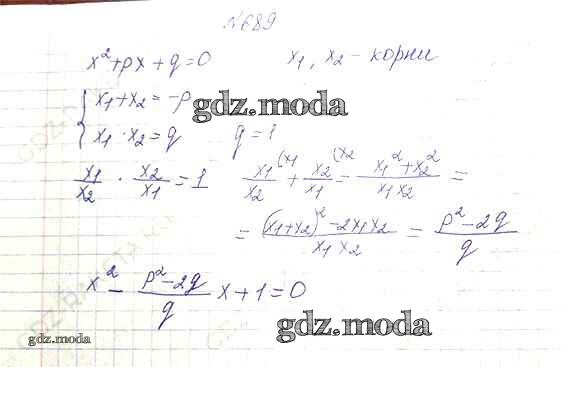 №689
x²+px+q=0    x₁, x₂ - корни
{ x₁+x₂=-p
x₁·x₂=q    q=1
gdz.moda
x₁/x₂ · x₂/x₁ = 1    x₁/x₂ (x₁ + x₂/x₁ (x₂ = x₁²+x₂²/x₁x₂ =
= (x₁+x₂)²-2x₁x₂/x₁x₂ = p²-2q/q
x² - p²-2q/q x+1=0
gdz.moda
gdz.moda